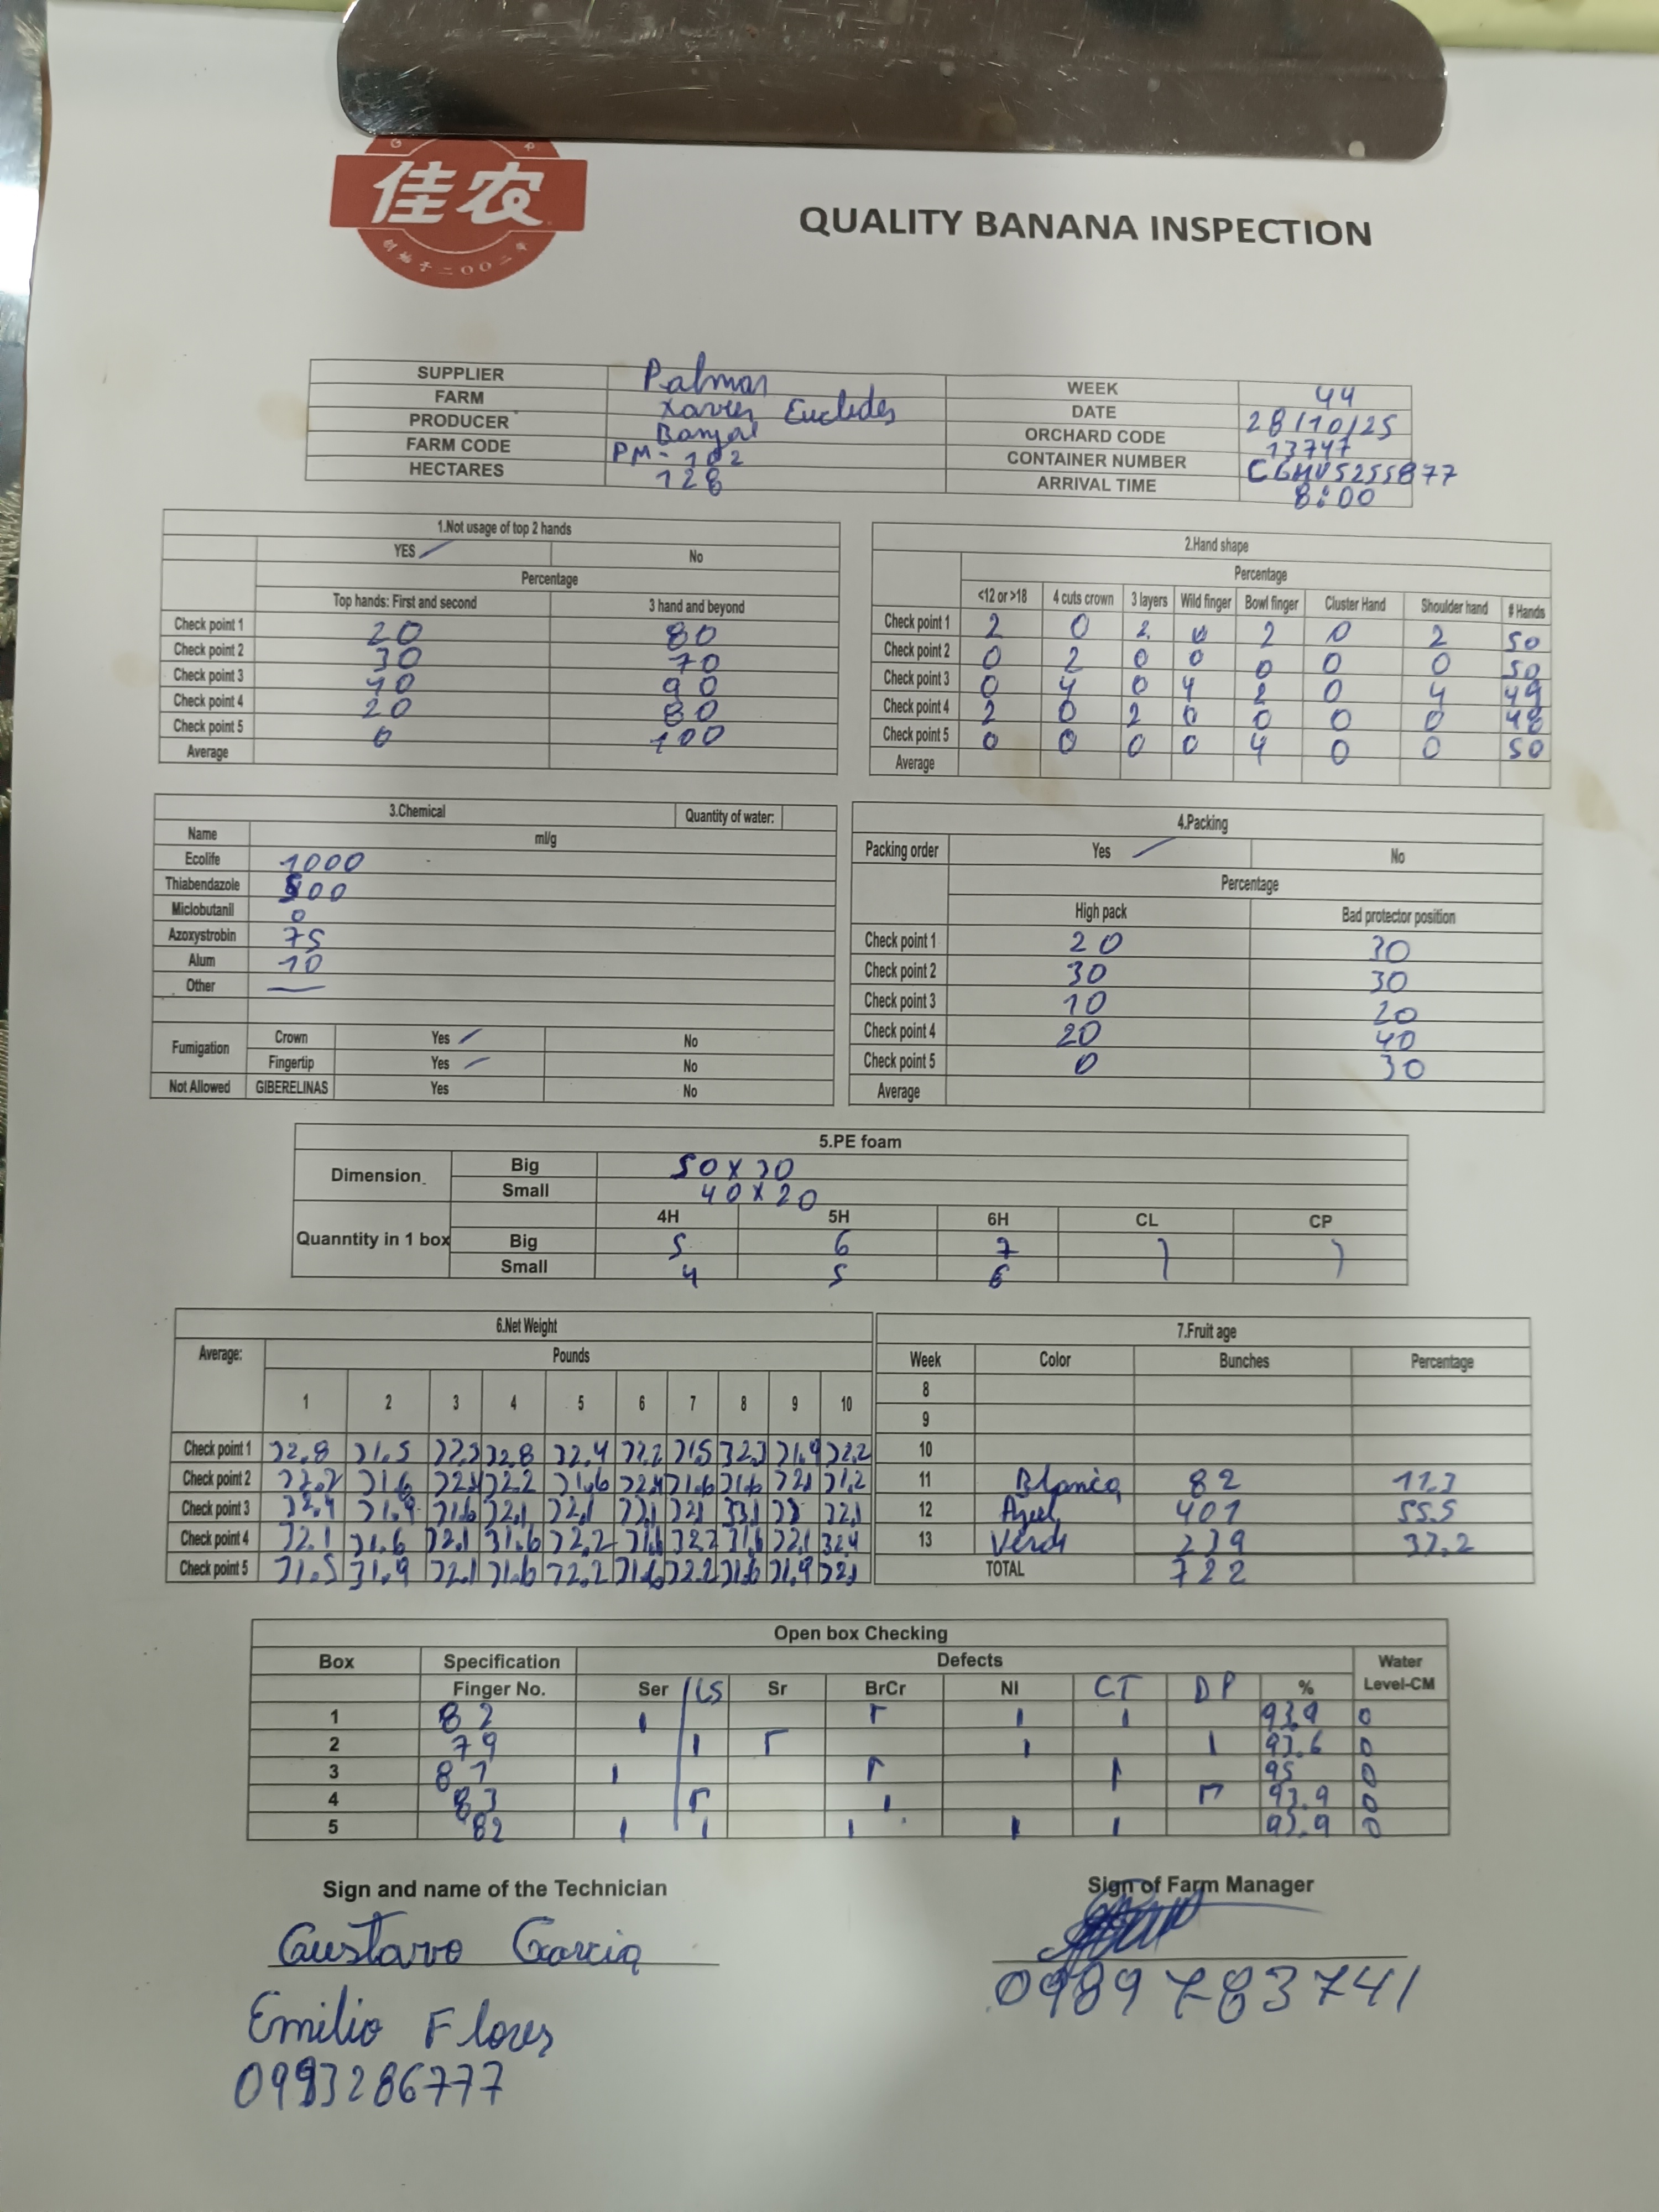 佳农
创始于二〇〇二年
QUALITY BANANA INSPECTION
SUPPLIER Palmar WEEK 44
FARM Xavier Euclides DATE 28/10/25
PRODUCER ORCHARD CODE 13747
FARM CODE PM-102 CONTAINER NUMBER
HECTARES 128 ARRIVAL TIME 8:00
1.Not usage of top 2 hands
YES No
Percentage
Top hands: First and second 3 hand and beyond
Check point 1 20 80
Check point 2 30 70
Check point 3 10 90
Check point 4 20 80
Check point 5 0 100
Average
2.Hand shape
Percentage
<12 or >18 4 cuts crown 3 layers Wild finger Bowl finger Cluster Hand Shoulder hand # Hands
Check point 1 2 0 2 0 2 0 2 50
Check point 2 0 2 0 0 0 0 0 50
Check point 3 0 4 0 4 2 0 4 49
Check point 4 2 0 2 0 0 0 0 48
Check point 5 0 0 0 0 4 0 0 50
Average
3.Chemical Quantity of water:
Name ml/g
Ecolife 1000
Thiabendazole 500
Miclobutanil 0
Azoxystrobin 75
Alum 10
Other —
Fumigation Crown Yes No
Fingertip Yes No
Not Allowed GIBERELINAS Yes No
4.Packing
Packing order Yes No
Percentage
High pack Bad protector position
Check point 1 20 30
Check point 2 30 30
Check point 3 10 20
Check point 4 20 40
Check point 5 0 30
Average
5.PE foam
Dimension Big 50 x 30
Small 40 x 20
Quanntity in 1 box 4H 5H 6H CL CP
Big 5 6 7
Small 4 5 6
6.Net Weight
Average: Pounds
1 2 3 4 5 6 7 8 9 10
Check point 1 32.8 31.5 32.8 32.4 32.2 31.5 32.3 31.9 32.2
Check point 2 31.6 32.2 31.6 31.6 31.6 32.1 31.2
Check point 3 32.4 31.9 31.6 32.1 32.1 32.1 32.1 33.1 33 32.1
Check point 4 32.1 31.6 32.1 31.6 32.2 31.6 32.2 31.6 32.1 32.4
Check point 5 31.5 31.9 32.1 31.6 32.2 31.6 32.2 31.6 31.9 32.1
7.Fruit age
Week Color Bunches Percentage
8
9
10
11 Blanca 82 11.3
12 Azul 401 55.5
13 Verde 239 33.2
TOTAL 722
Open box Checking
Box Specification Defects Water
Finger No. Ser /LS Sr BrCr NI CT DP % Level-CM
1 82 93.9 0
2 79 93.6 0
3 81 95 0
4 83 93.9 0
5 82 93.9 0
Sign and name of the Technician Sign of Farm Manager
Gustavo Garcia
0989783741
Emilio Flores
0993286777